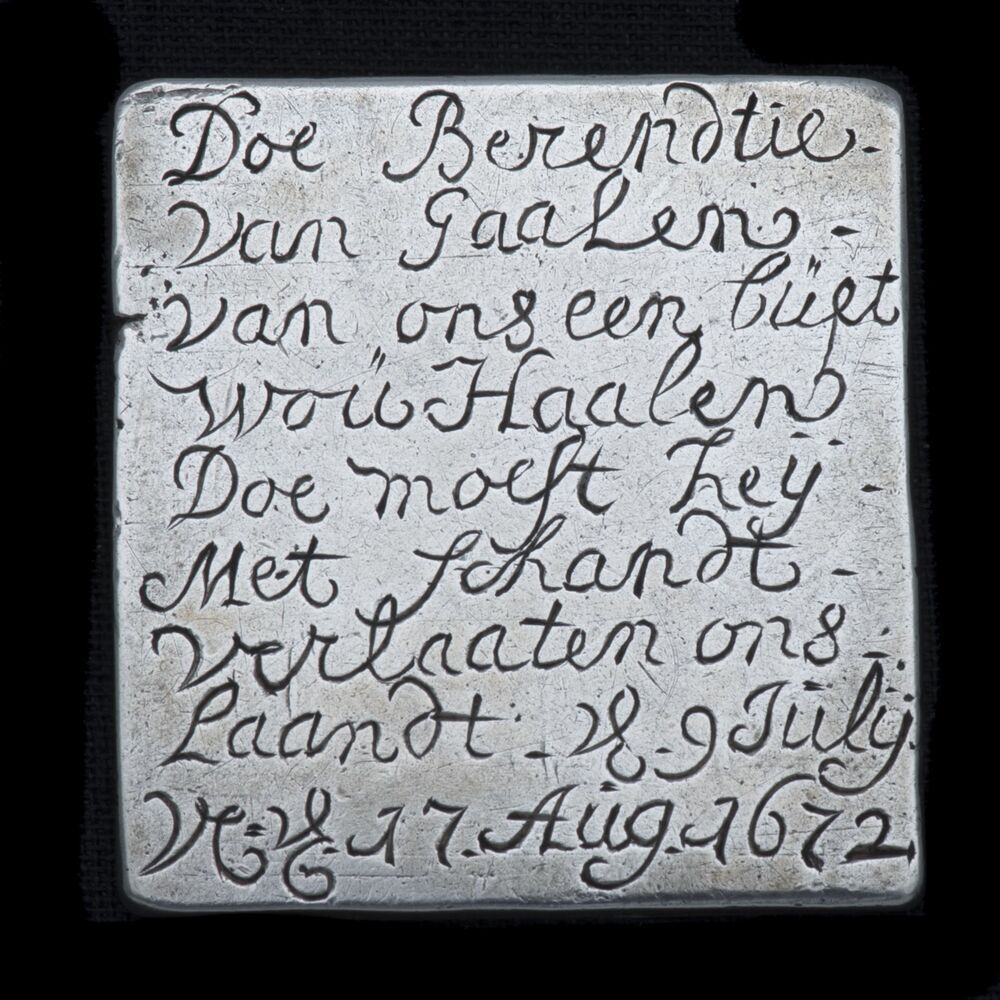 Doe Berendtie -
van Gaalen -
van ons een büest
woü Haalen
Doe moest Zeÿ -
Met schandt -
verlaaten ons -
Laandt. 9 Jülÿ.
17. Aüg. 1672